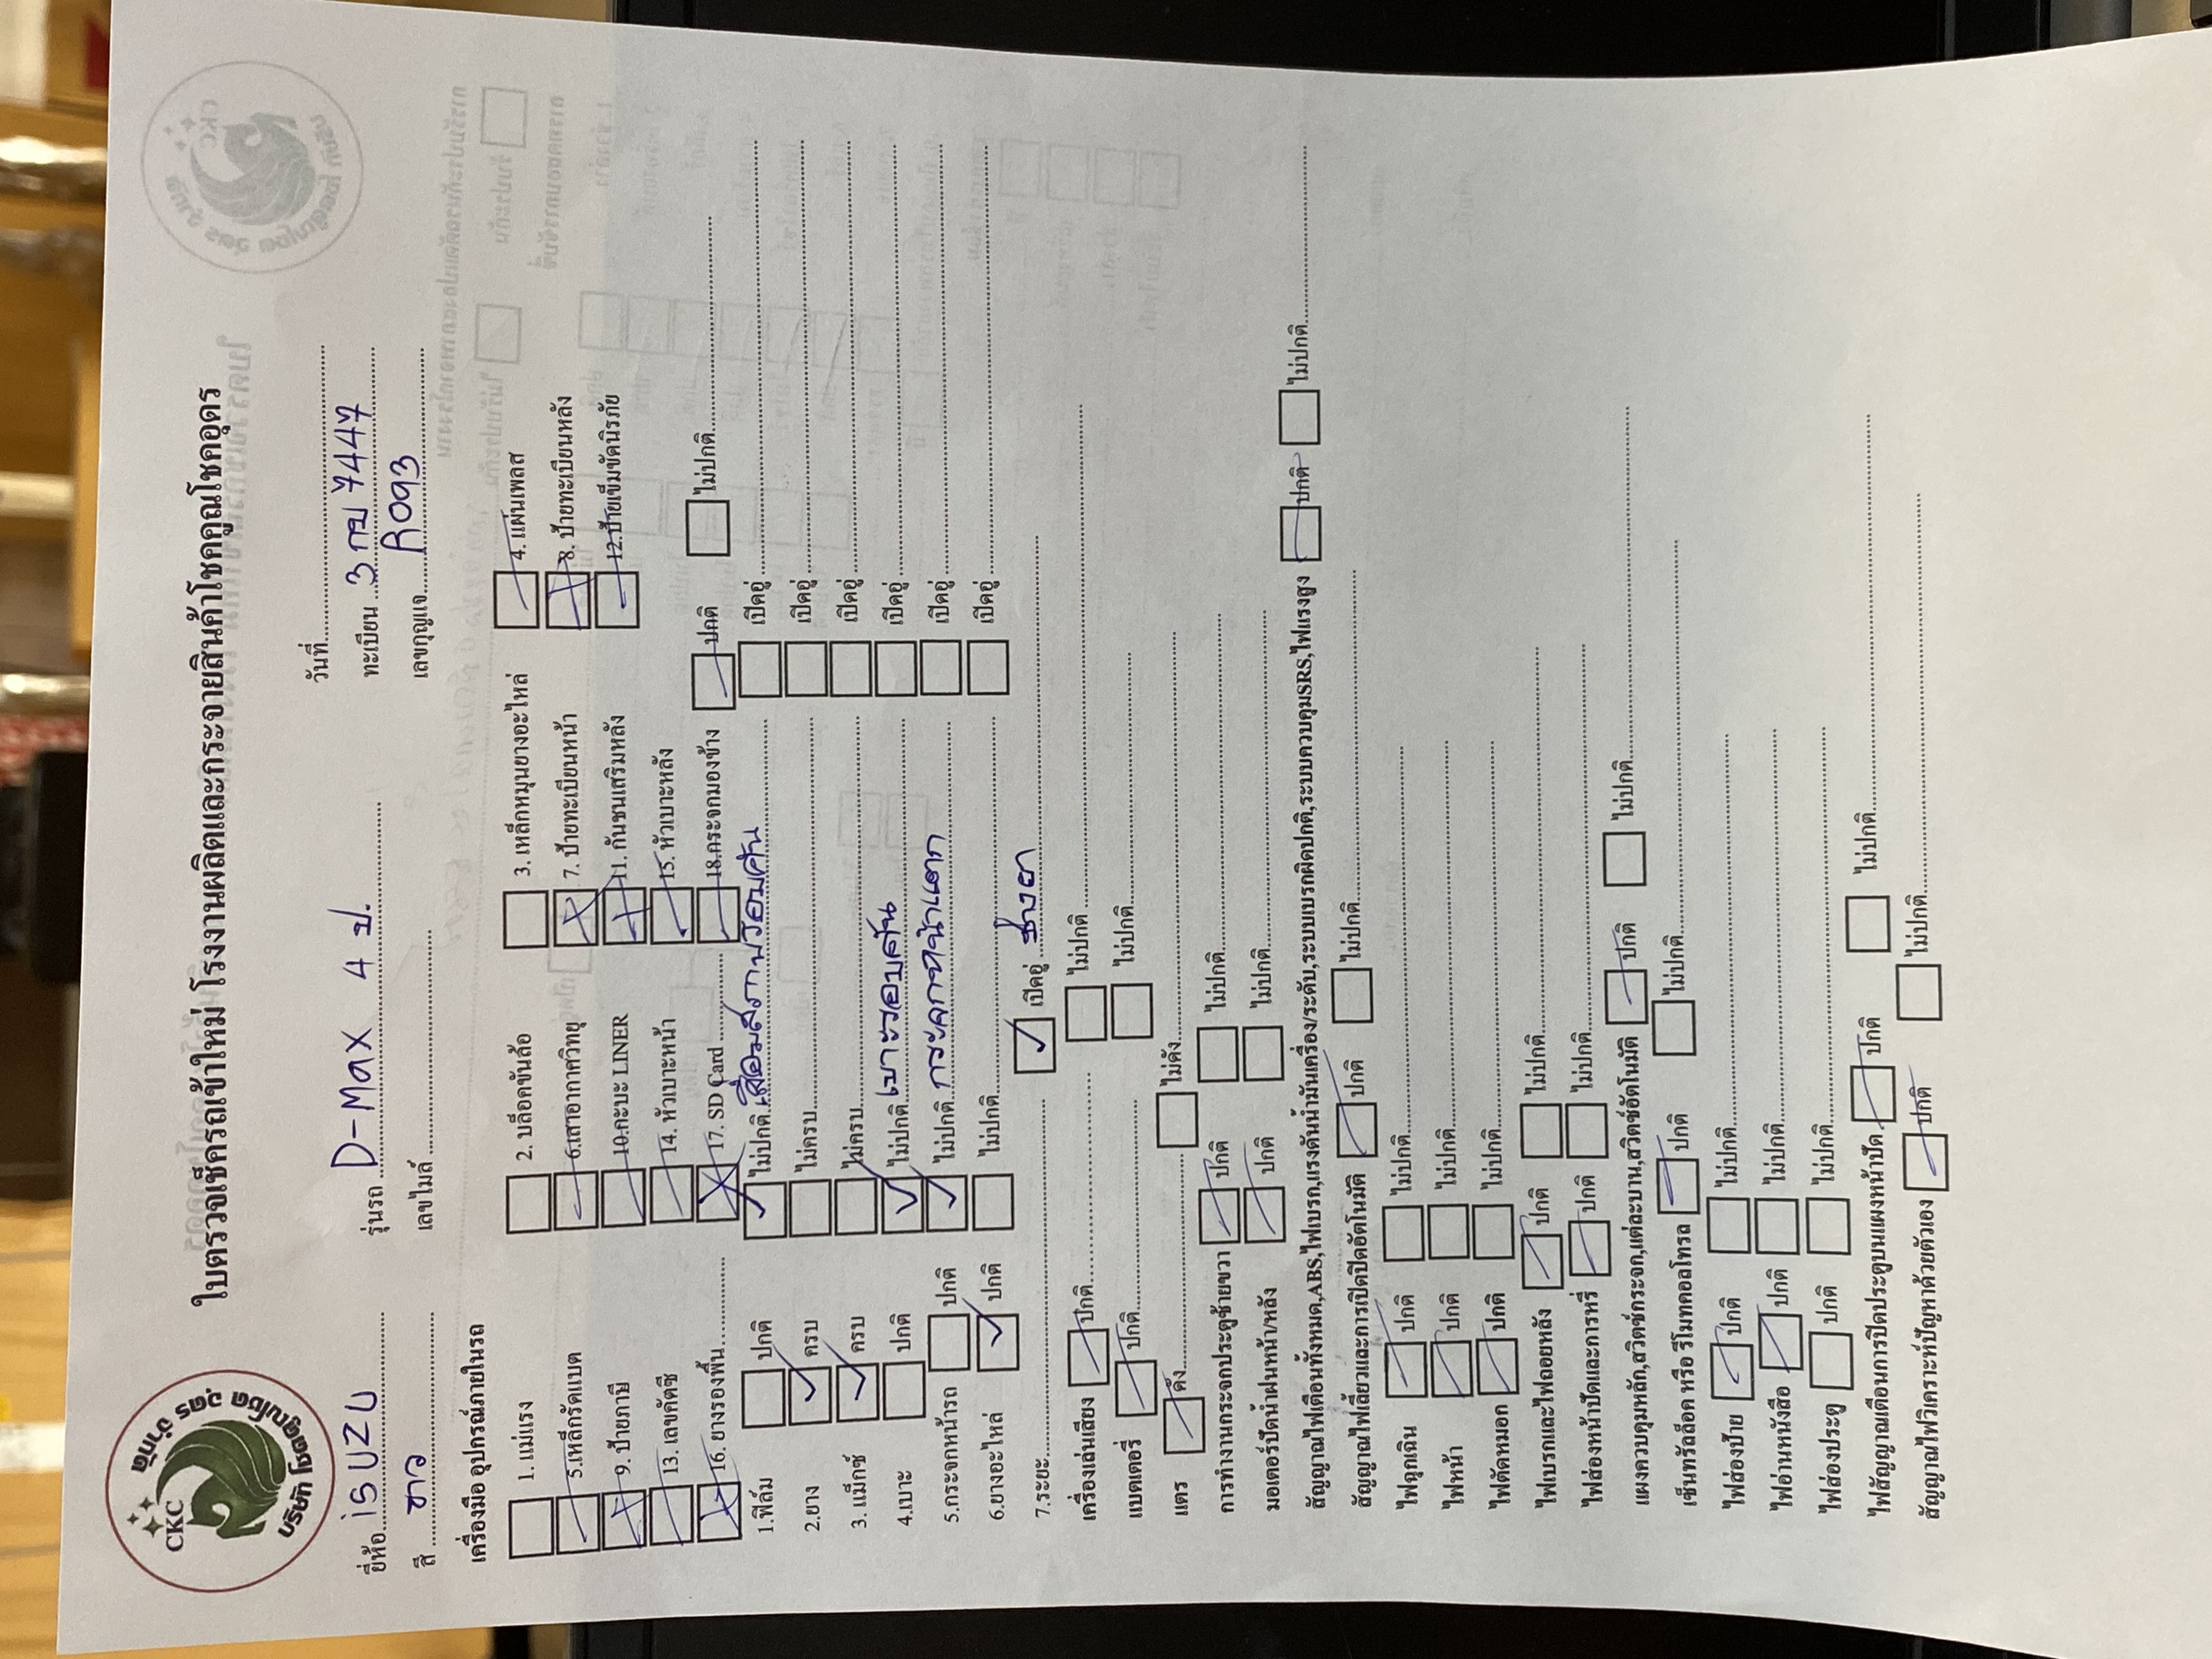 CKC
บริษัท โชคคูณโชค อุดร จำกัด
ใบตรวจเช็ครถเข้าใหม่ โรงงานผลิตและกระจายสินค้าโชคคูณโชคอุดร
วันที่
ยี่ห้อ iSUZU รุ่นรถ D-Max 4 ป. ทะเบียน 3 กบ 7447
สี ขาว เลขไมล์ เลขกุญแจ R093
เครื่องมือ อุปกรณ์ภายในรถ
1. แม่แรง 2. บล็อคขันล้อ 3. เหล็กหมุนยางอะไหล่ 4. แผ่นเพลส
5.เหล็กรัดแบต 6.เสาอากาศวิทยุ 7. ป้ายทะเบียนหน้า 8. ป้ายทะเบียนหลัง
9. ป้ายภาษี 10.กะบะ LINER 11. กันชนเสริมหลัง 12.ป้ายเข็มขัดนิรภัย
13. เลขคัตซี 14. หัวเบาะหน้า 15. หัวเบาะหลัง
16. ยางรองพื้น 17. SD Card 18.กระจกมองข้าง ปกติ ไม่ปกติ
1.ฟิล์ม ปกติ ไม่ปกติ เสื่อมสภาพรอบคัน เปิดอู่
2.ยาง ครบ ไม่ครบ เปิดอู่
3. แม็กซ์ ครบ ไม่ครบ เปิดอู่
4.เบาะ ปกติ ไม่ปกติ เบาะรอบคัน เปิดอู่
5.กระจกหน้ารถ ปกติ ไม่ปกติ กระจกหน้าแตก เปิดอู่
6.ยางอะไหล่ ปกติ ไม่ปกติ เปิดอู่
7.ระยะ เปิดอู่ ช่างยา
เครื่องเล่นเสียง ปกติ ไม่ปกติ
แบตเตอรี่ ปกติ ไม่ปกติ
แตร ดัง ไม่ดัง
การทำงานกระจกประตูซ้ายขวา ปกติ ไม่ปกติ
มอเตอร์ปัดน้ำฝนหน้า/หลัง ปกติ ไม่ปกติ
สัญญาณไฟเตือนทั้งหมด,ABS,ไฟเบรก,แรงดันน้ำมันเครื่อง/ระดับ,ระบบเบรกผิดปกติ,ระบบควบคุมSRS,ไฟแรงสูง ปกติ ไม่ปกติ
สัญญาณไฟเลี้ยวและการเปิดปิดอัตโนมัติ ปกติ ไม่ปกติ
ไฟฉุกเฉิน ปกติ ไม่ปกติ
ไฟหน้า ปกติ ไม่ปกติ
ไฟตัดหมอก ปกติ ไม่ปกติ
ไฟเบรกและไฟถอยหลัง ปกติ ไม่ปกติ
ไฟส่องหน้าปัดและการหรี่ ปกติ ไม่ปกติ
แผงควบคุมหลัก,สวิตช์กระจก,แต่ละบาน,สวิตช์อัตโนมัติ ปกติ ไม่ปกติ
เซ็นทรัลล็อค หรือ รีโมทคอลโทรล ปกติ ไม่ปกติ
ไฟส่องป้าย ปกติ ไม่ปกติ
ไฟอ่านหนังสือ ปกติ ไม่ปกติ
ไฟส่องประตู ปกติ ไม่ปกติ
ไฟสัญญาณเตือนการปิดประตูบนแผงหน้าปัด ปกติ ไม่ปกติ
สัญญาณไฟวิเคราะห์ปัญหาด้วยตัวเอง ปกติ ไม่ปกติ